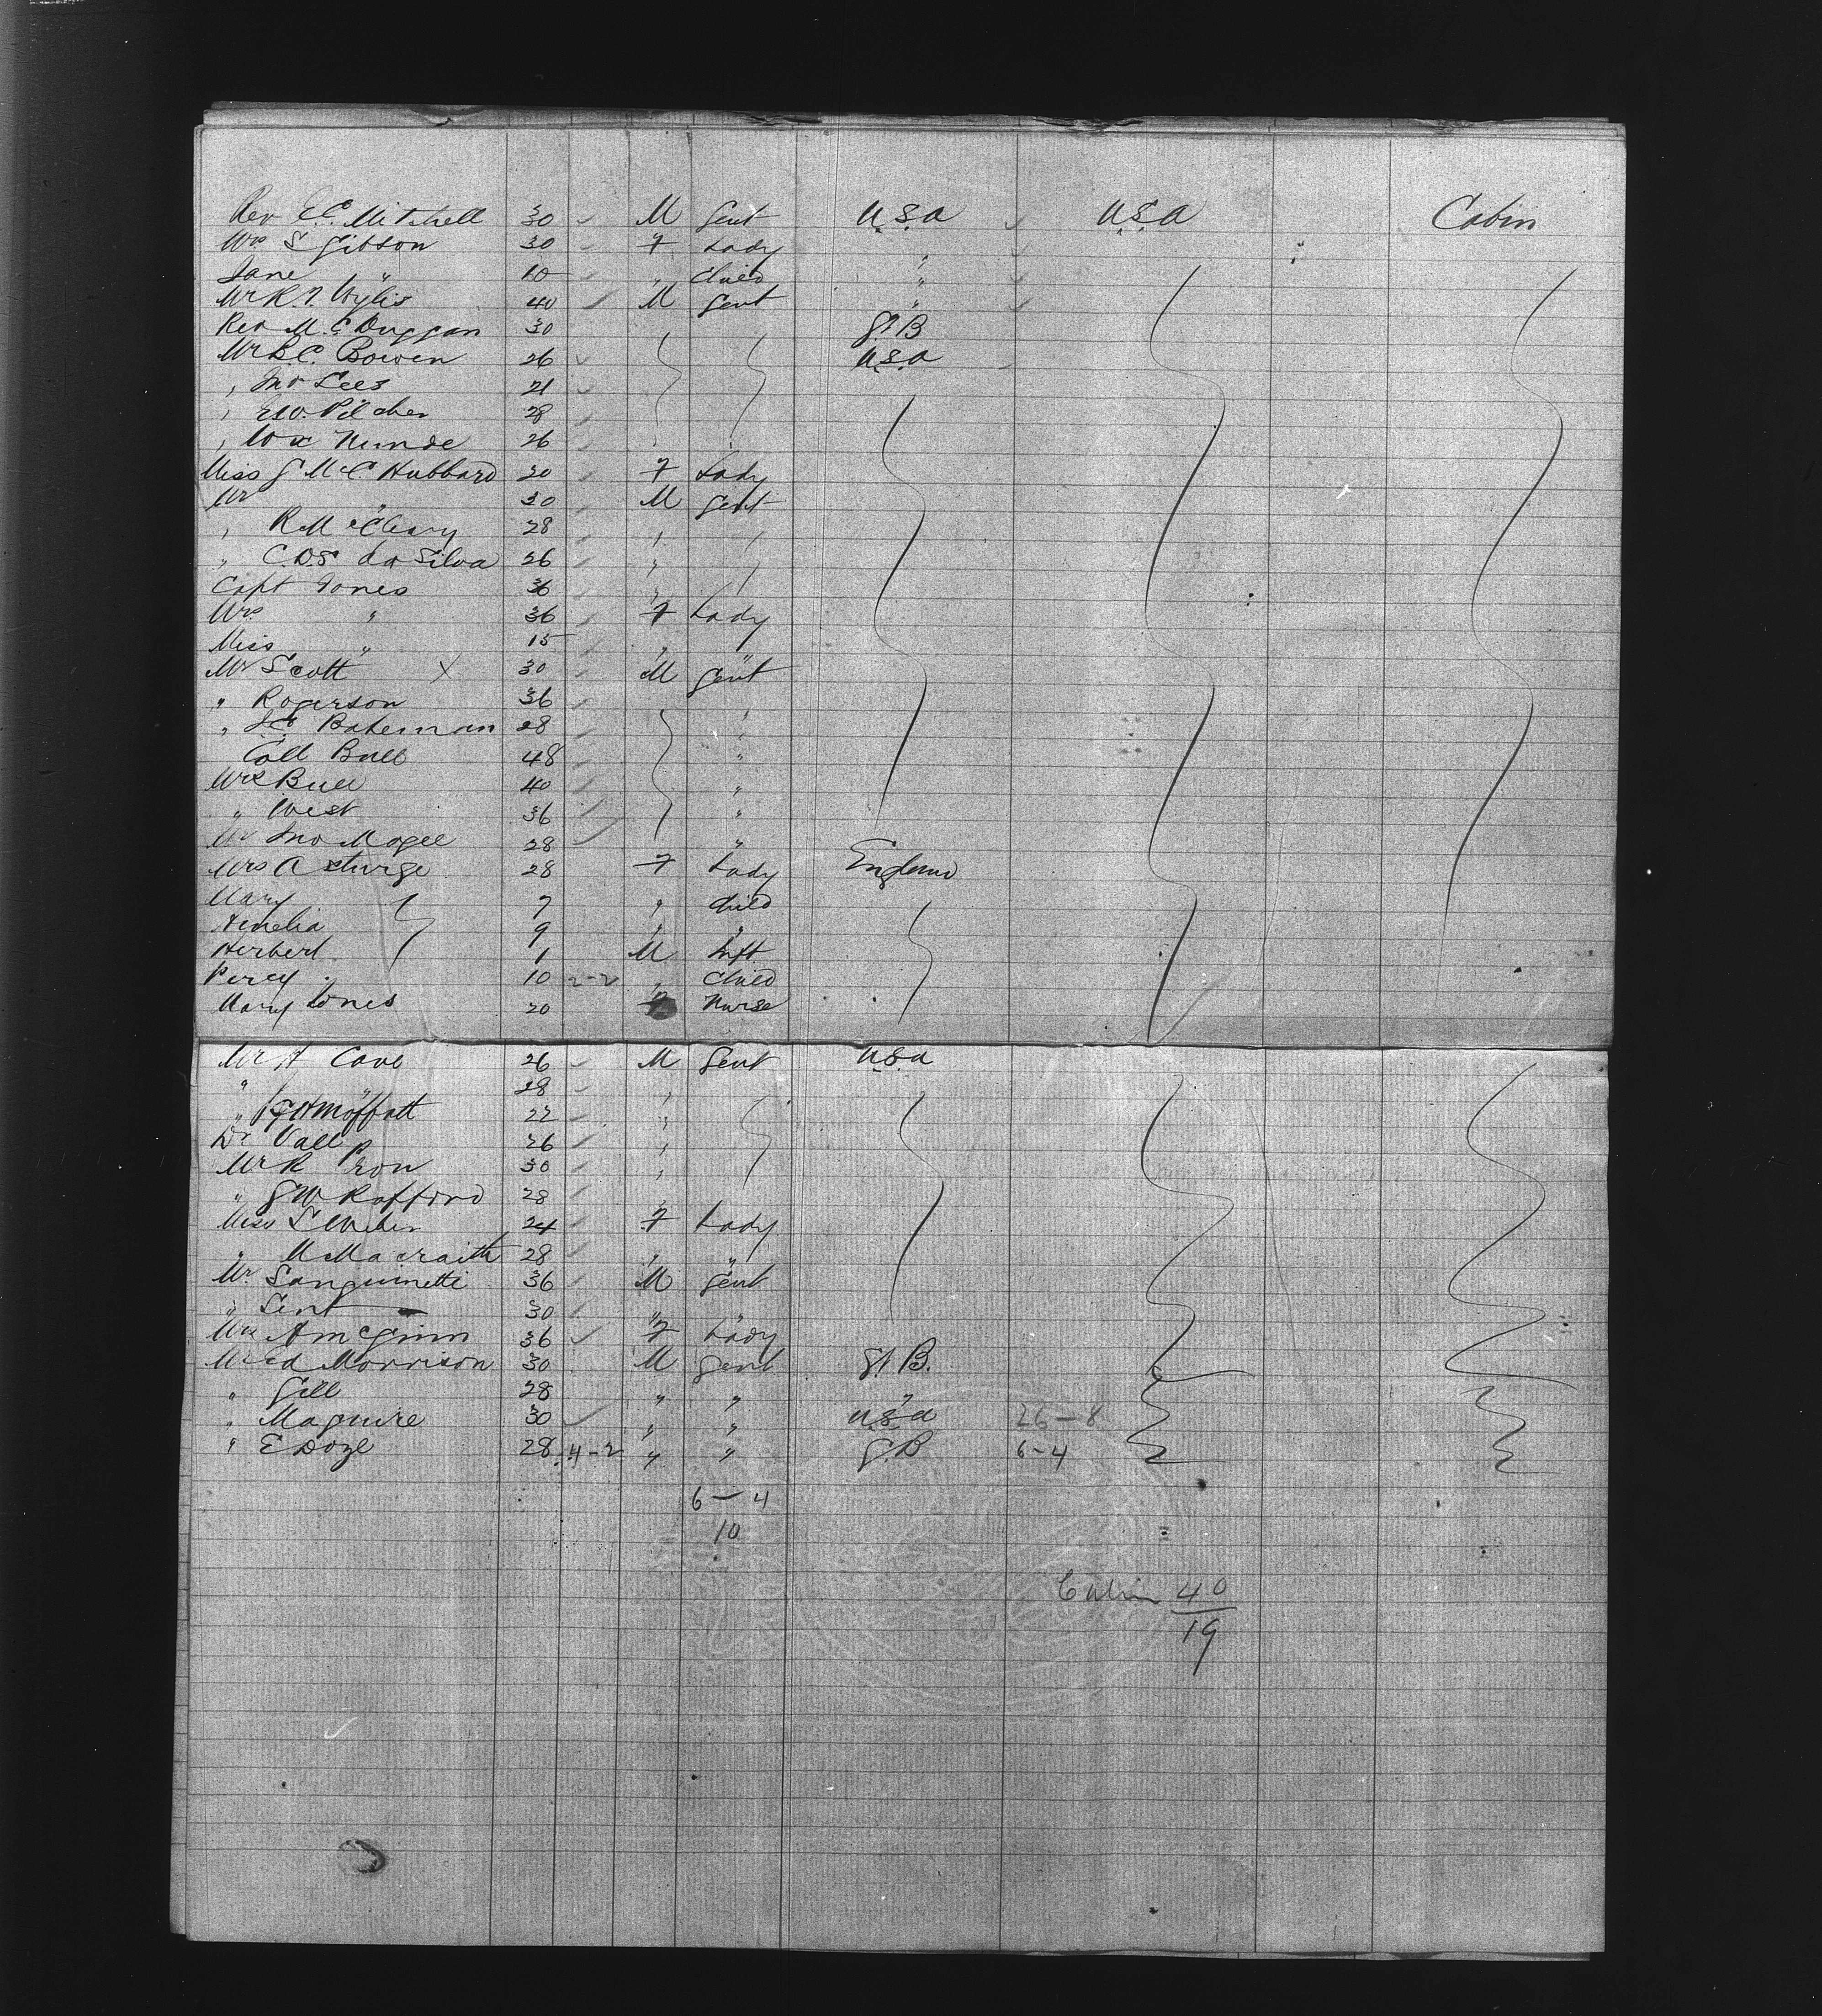 Rev E.C. Mitchell 30 M Gent U.S.A U.S.A Cabin
Mrs S Gibson 30 F Lady "
Jane " 10 " Child "
Mr R. T. Wylis 40 M Gent "
Rev M. C Duggan 30 Gt B
Mr B.C. Bowen 26 U.S.A
" Jno Lees 21
" E.W. Pilcher 28
" Wx Nunde 26
Miss G McC. Hubbard 20 F Lady
Mr " 30 M Gent
" R McCleary 28 " "
" C.D.S da Silva 26 " "
Capt Jones 36 " "
Mrs " 36 F Lady
Miss " 15 " "
Mr Scott X 30 M Gent
" Rogerson 36
" J.C. Bateman 28 "
Coll Bull 48 "
Mrs Bull 40 "
" West 36 "
Mr Jno Magee 28 "
Mrs A Sturge 28 F Lady England
Mary 7 " Child
Amelia 9 " "
Herbert 1 M Inft
Percy 10 2-2 " Child
Mary Jones 20 F Nurse
Mr H Cave 26 M Gent U.S.A
" " 28 "
" Moffatt 22 "
Dr Vall 26 "
Mr R Pron 30 "
" G W Rafford 28 "
Miss S Weber 24 F Lady
" M Macraith 28 " "
Mr Sanguinetti 36 M Gent
" Lent 30 " "
Mrs A McGinn 36 F Lady
Mr Ed Morrison 30 M Gent Gt B.
" Gill 28 " " "
" Maguire 30 " " U.S.A 26-8
" E Doze 28 4-2 " " G.B 6-4
6-4
10
Cabin 40
19